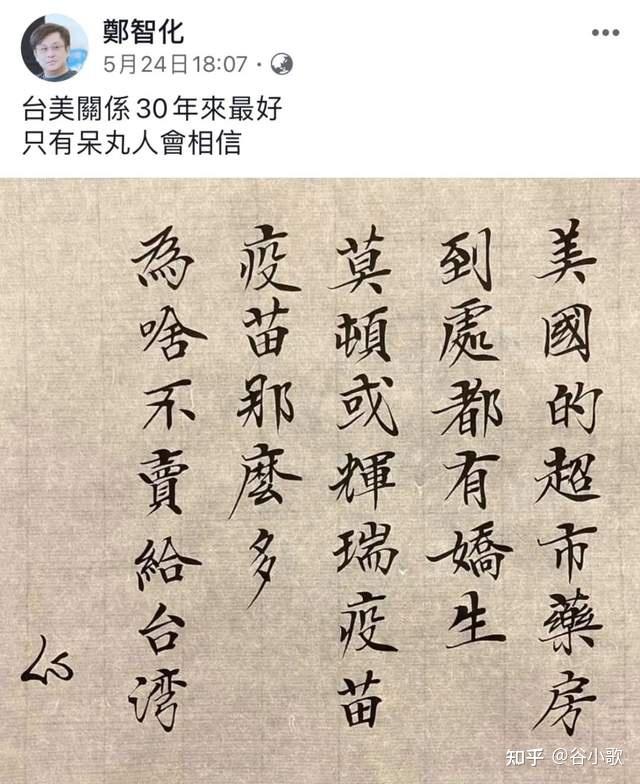 鄭智化
5月24日18:07
台美關係30年來最好
只有呆丸人會相信
美國的超市藥房
到處都有嬌生
莫頓或輝瑞疫苗
疫苗那麼多
為啥不賣給台湾
知乎 @谷小歌